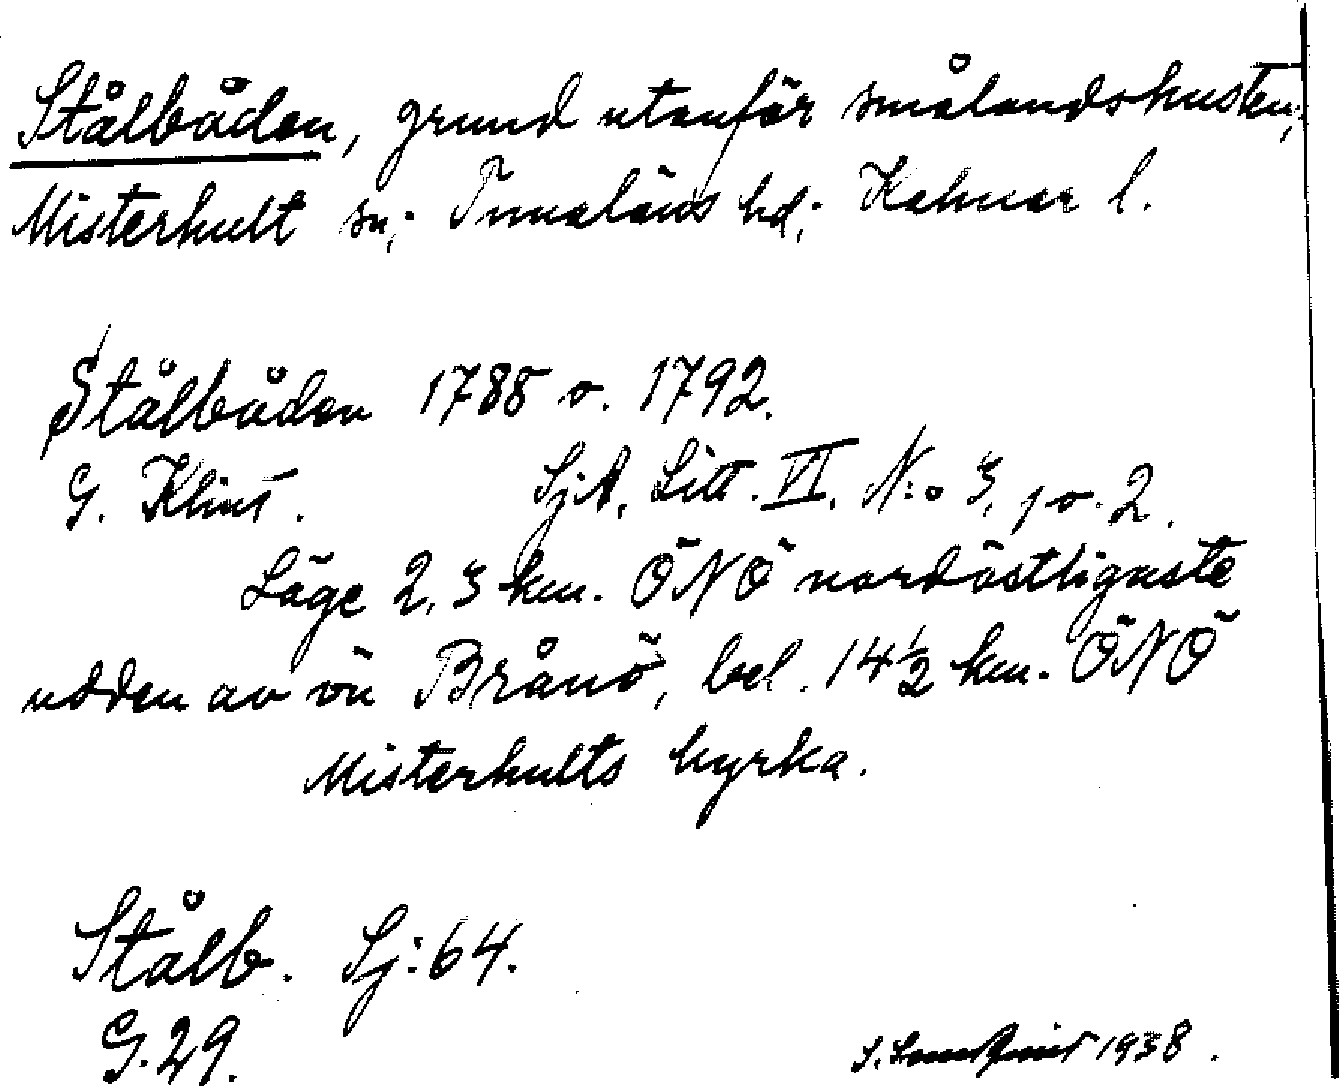 Stålbåden, grund utanför smålandskusten,
Misterhult sn; Tunaläns hd; Kalmar l.
Stålbåden 1788 o. 1792.
G. Klint. SjA, Litt. VI. N:o 3, 1 o. 2.
Läge 2,3 km. ÖNÖ nordöstligaste
udden av ön Brånö, bel. 14½ km. ÖNÖ
Misterhults kyrka.
Stålb. Sj:64.
G.29.
S. 1938.